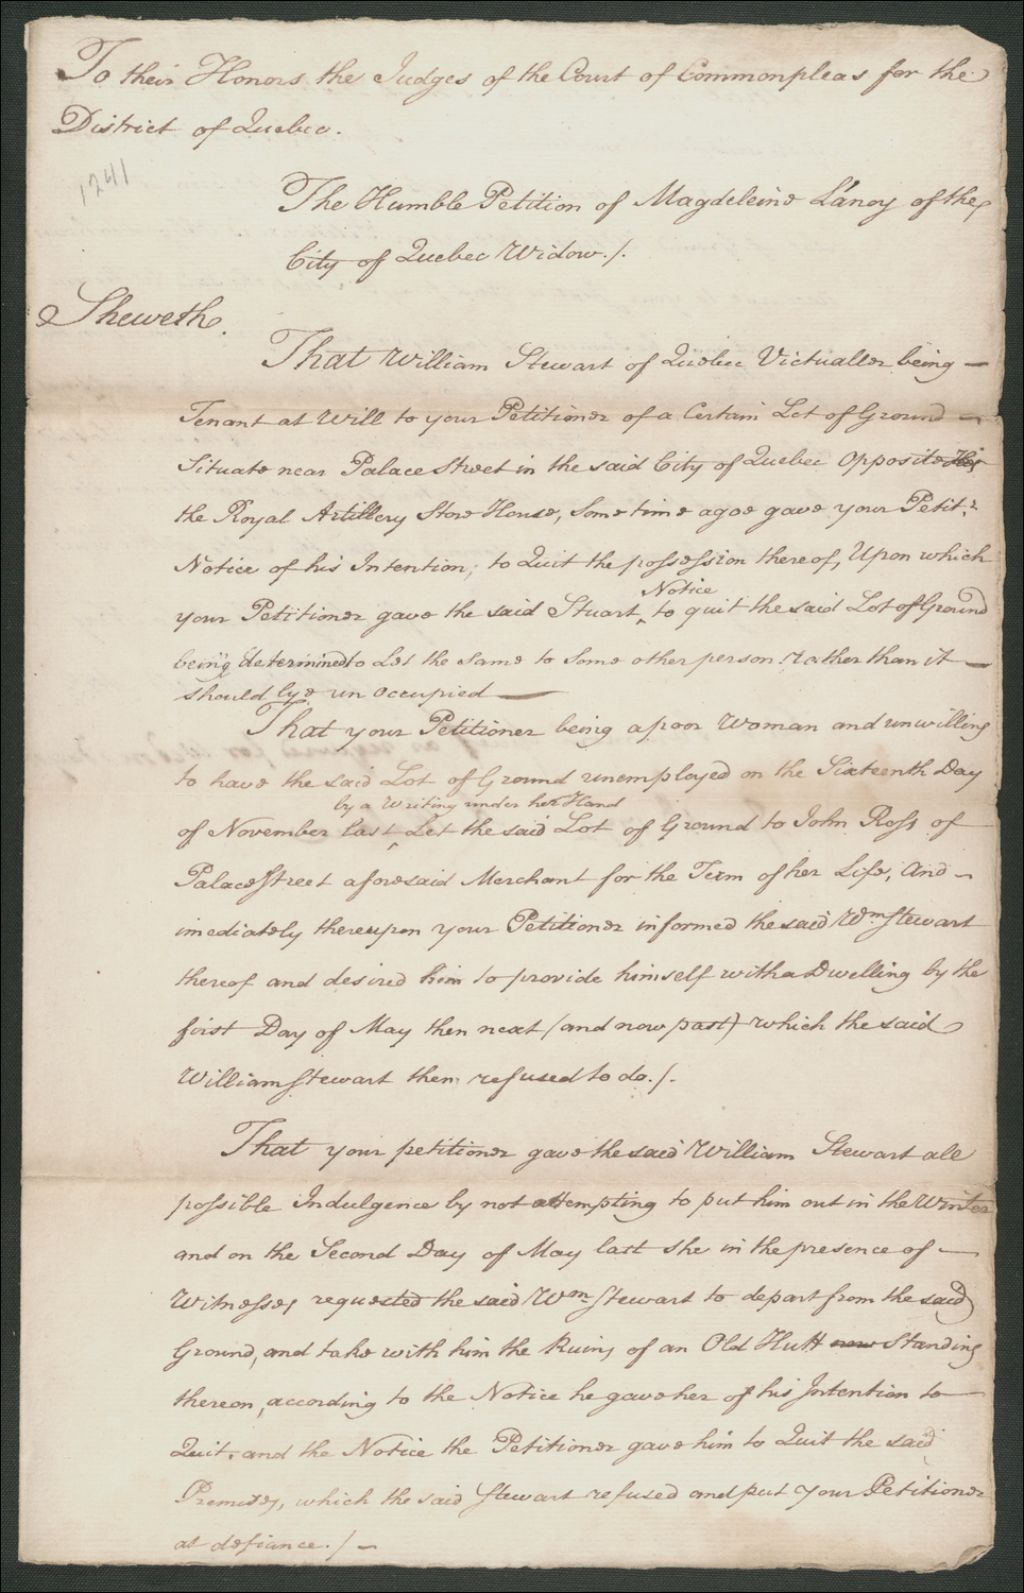 To their Honors the Judges of the Court of Commonpleas for the
District of Quebec.
1241
The Humble Petition of Magdeleine L'anoy of the
City of Quebec Widow./.
Sheweth.
That William Stewart of Quebec Victualler being —
Tenant at Will to your Petitioner of a Certain Lot of Ground —
Situate near Palace Street in the said City of Quebec Opposite
the Royal Artillery Store House, Some time agoe gave your Petitr.
Notice of his Intention, to Quit the possession thereof, Upon which
Notice
your Petitioner gave the said Stuart ^ to quit the said Lot of Ground
being determined to Let the Same to Some other person rather than it —
should lye un occupied —
That your Petitioner being a poor Woman and unwilling
to have the said Lot of Ground unemployed on the Sixteenth Day
by a Writing under her Hand
of November last ^ Let the said Lot of Ground to John Ross of
Palace Street aforesaid Merchant for the Term of her Life, And —
imediately thereupon your Petitioner informed the said Wm. Stewart
thereof and desired him to provide himself with a Dwelling by the
first Day of May then next (and now past) which the said
William Stewart then refused to do./.
That your petitioner gave the said William Stewart all
possible Indulgence by not attempting to put him out in the Winter
and on the Second Day of May last she in the presence of —
Witnesses requested the said Wm. Stewart to depart from the said
Ground, and take with him the Ruins of an Old Hutt now Standing
thereon, according to the Notice he gave her of his Intention to
Quit, and the Notice the Petitioner gave him to Quit the said
Premises, which the said Stewart refused and put your Petitioner
at defiance./ —